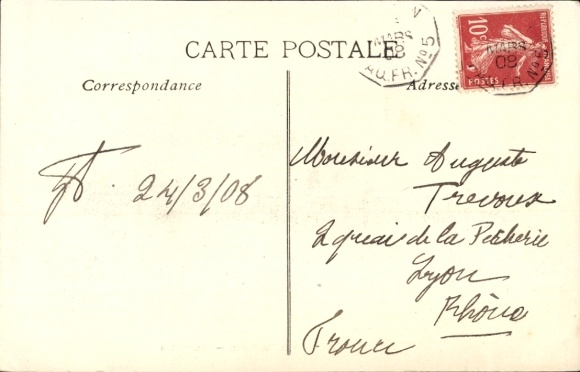 CARTE POSTALE
Correspondance
Adresse
N
MARS
08
AU.FR. Nº5
10c
POSTES
MARS
08
FR. Nº5
24/3/08
Monsieur Auguste
Trevoux
2 quai de la Pêcherie
Lyon
Rhône
France